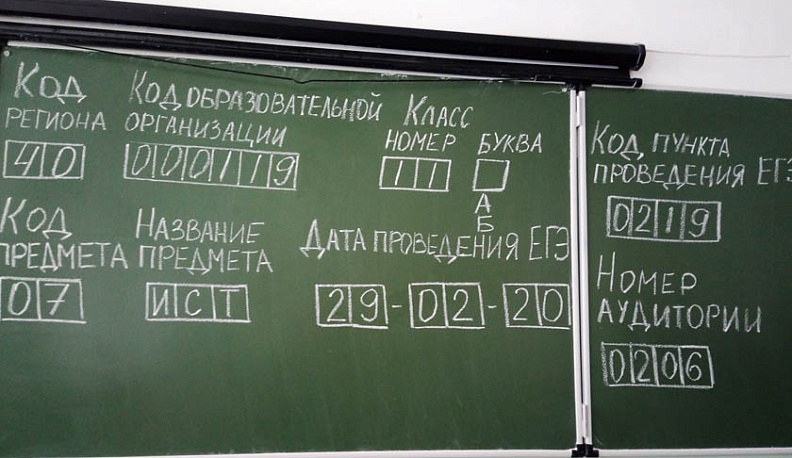 Код региона
40
Код образовательной организации
000119
Класс
номер буква
11
А
Б
Код предмета
07
Название предмета
ИСТ
Дата проведения ЕГЭ
29-02-20
Код пункта проведения ЕГЭ
0219
Номер аудитории
0206